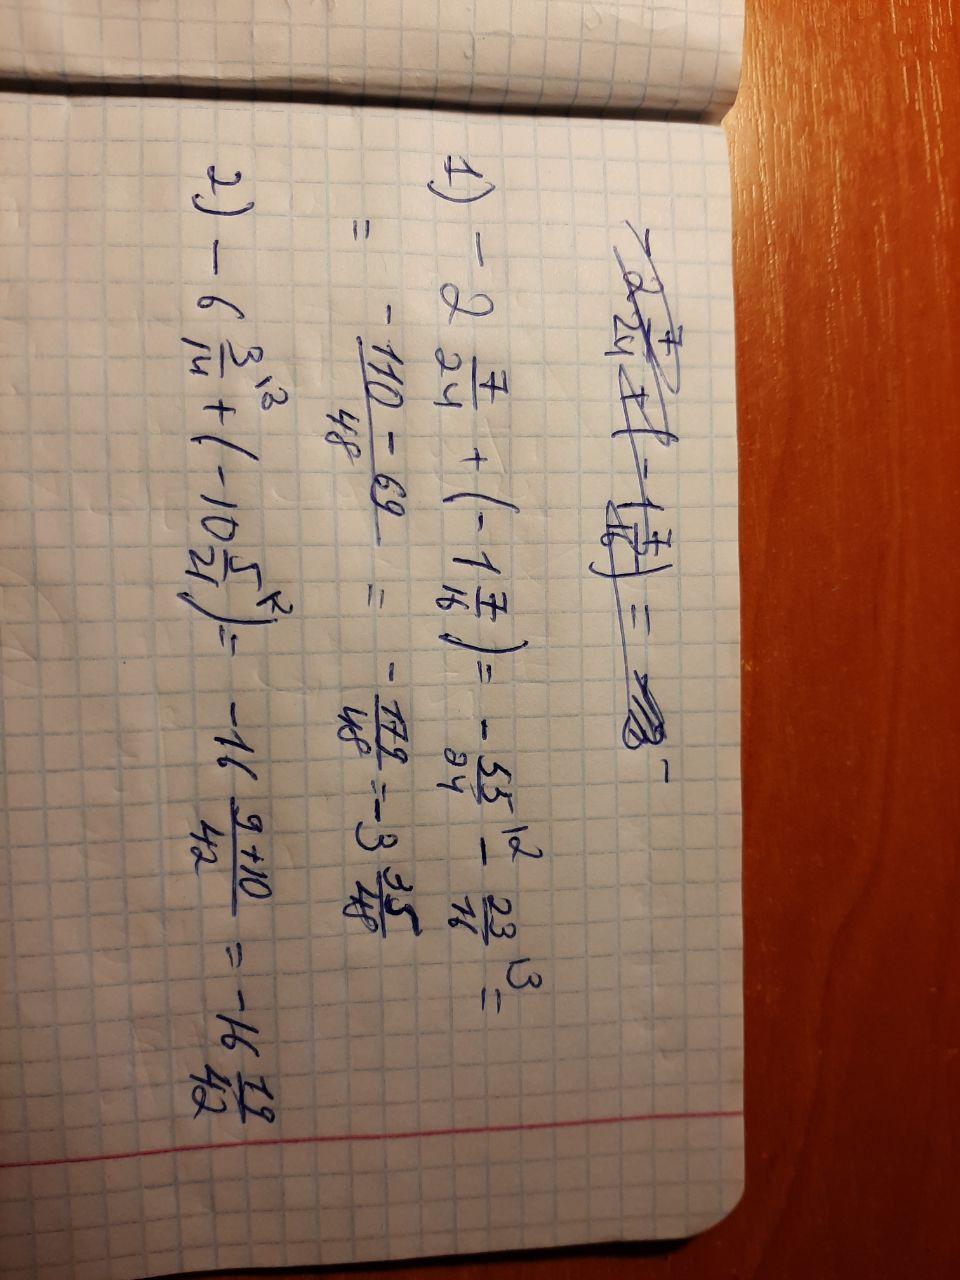 -2 7/24 + (-1 7/16) =
1) - 2 7/24 + (- 1 7/16) = - 55/24 \2 - 23/16 \3 =
= -110 - 69/48 = - 179/48 = -3 35/48
2) - 6 3/14 \3 + (- 10 5/21 \2) = -16 9+10/42 = -16 19/42